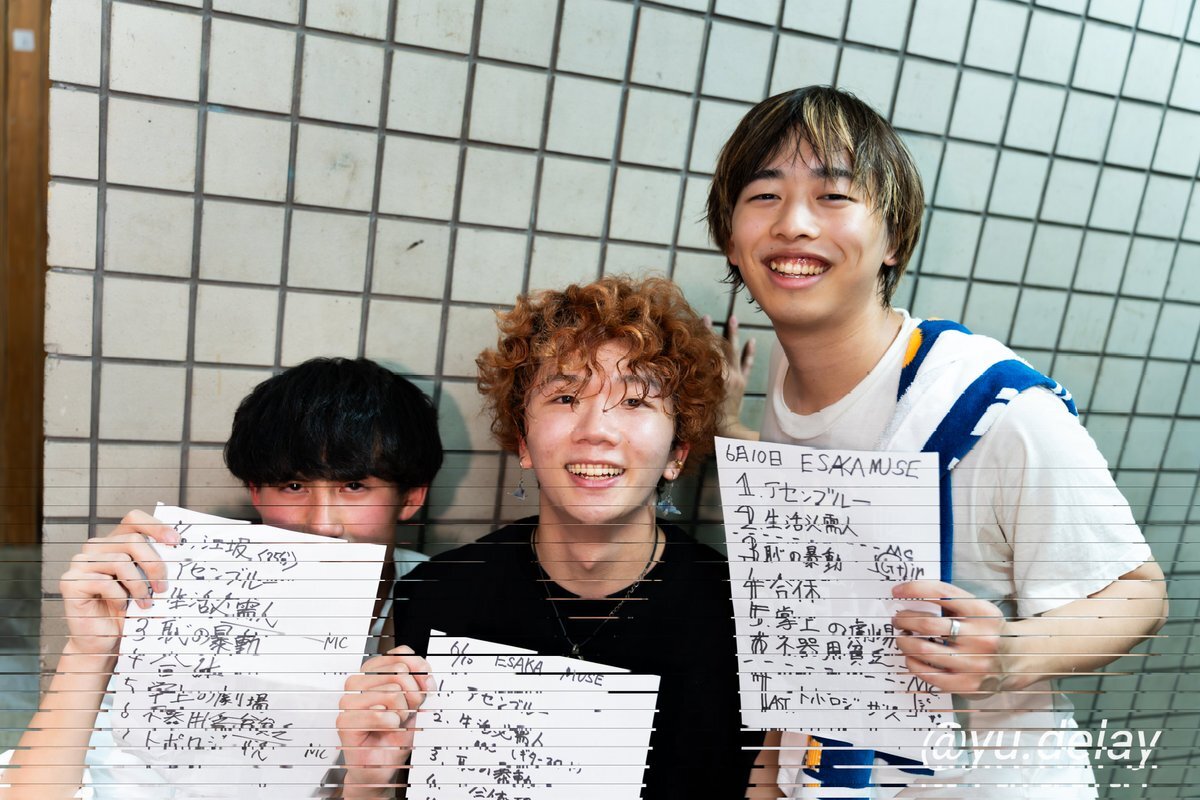 江坂
デセンブルー
生活必需人
3 恥の暴動
MC
4 合体
5 掌上の劇場
6 不器用貧乏
7 トポロジ
MC
6/10 ESAKA MUSE
1. デセンブルー
2. 生活必需人
3. 恥の暴動
合体
6月10日 ESAKA MUSE
1. デセンブルー
2. 生活必需人
3. 恥の暴動
MC
4 合体
5 掌上の劇場
6 不器用貧乏
MC
LAST トポロジ
@yu.delay